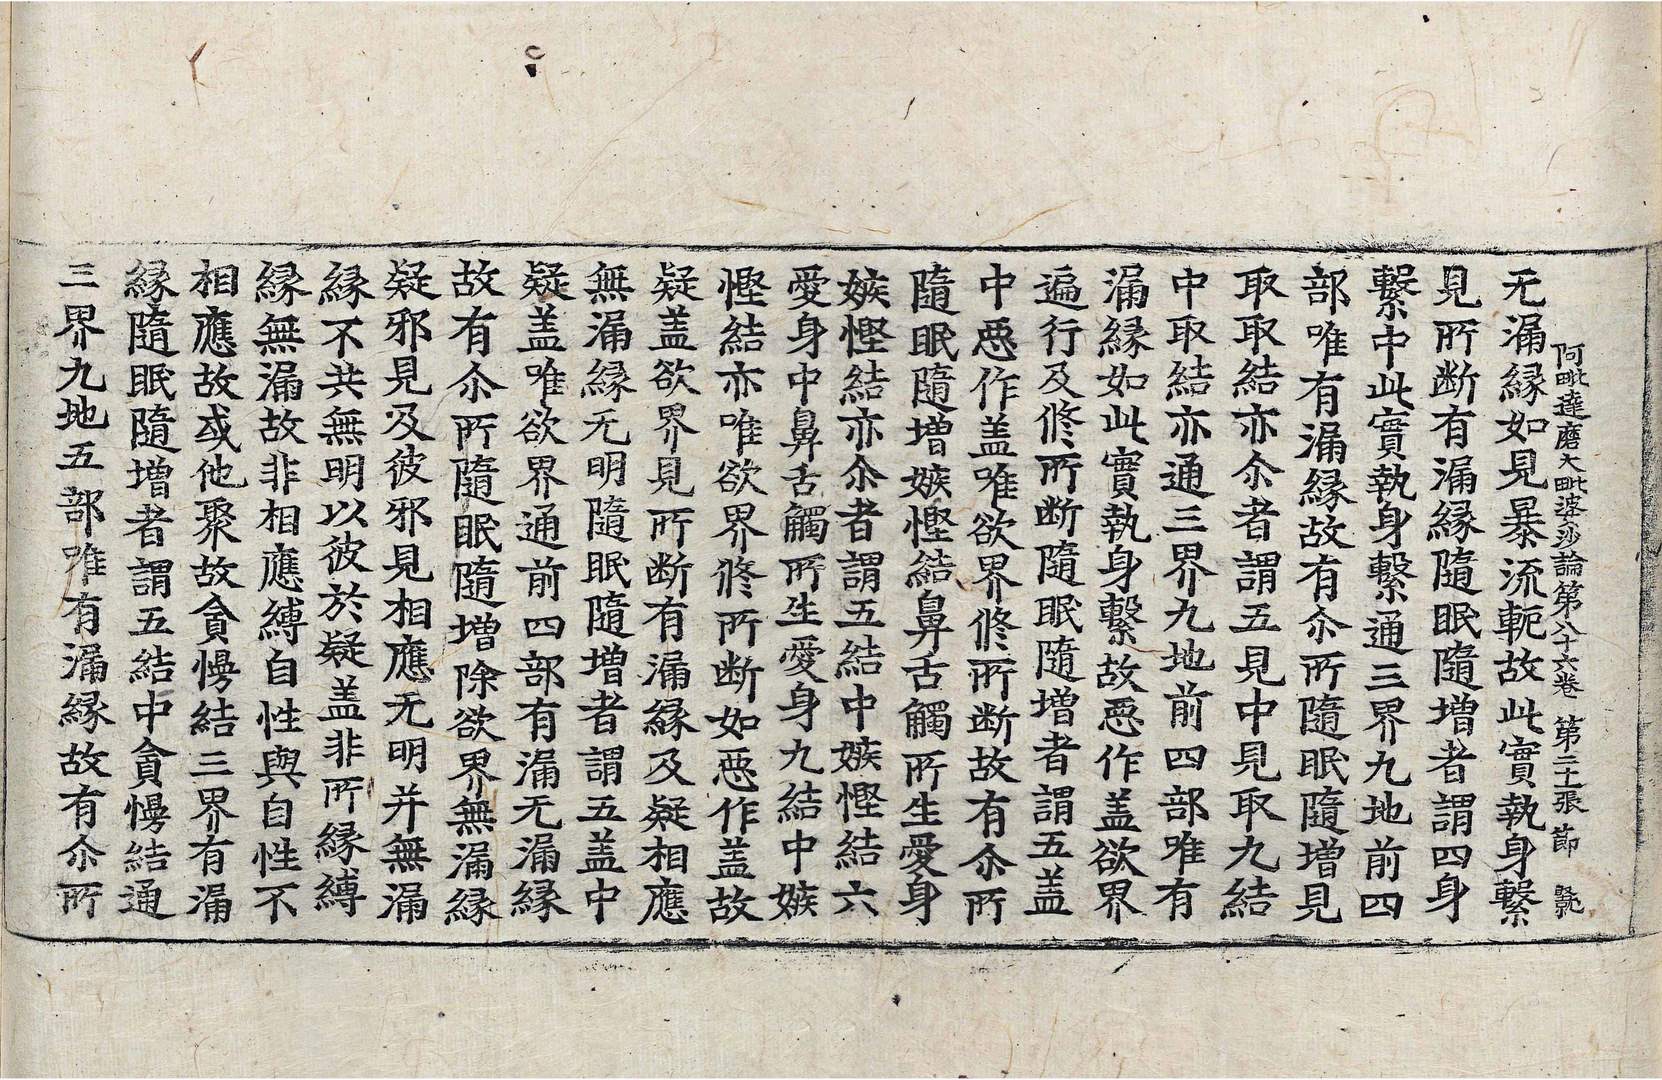 阿毗達磨大毗婆沙論第八十六卷 第二十一張 節
无漏縁如見暴流軛故此實執身繫
見所断有漏縁隨眠隨増者謂四身
繫中此實執身繫通三界九地前四
部唯有漏縁故有尒所隨眠隨増見
取取結亦尒者謂五見中見取九結
中取結亦通三界九地前四部唯有
漏縁如此實執身繫故惡作盖欲界
遍行及修所断隨眠隨増者謂五盖
中惡作盖唯欲界修所断故有尒所
隨眠隨増嫉慳結鼻舌觸所生愛身
嫉慳結亦尒者謂五結中嫉慳結六
愛身中鼻舌觸所生愛身九結中嫉
慳結亦唯欲界修所断如惡作盖故
疑盖欲界見所断有漏縁及疑相應
無漏縁无明隨眠隨増者謂五盖中
疑盖唯欲界通前四部有漏无漏縁
故有尒所隨眠隨増除欲界無漏縁
疑邪見及彼邪見相應无明并無漏
縁不共無明以彼於疑盖非所縁縛
縁無漏故非相應縛自性與自性不
相應故或他聚故貪慢結三界有漏
縁隨眠隨増者謂五結中貪慢結通
三界九地五部唯有漏縁故有尒所